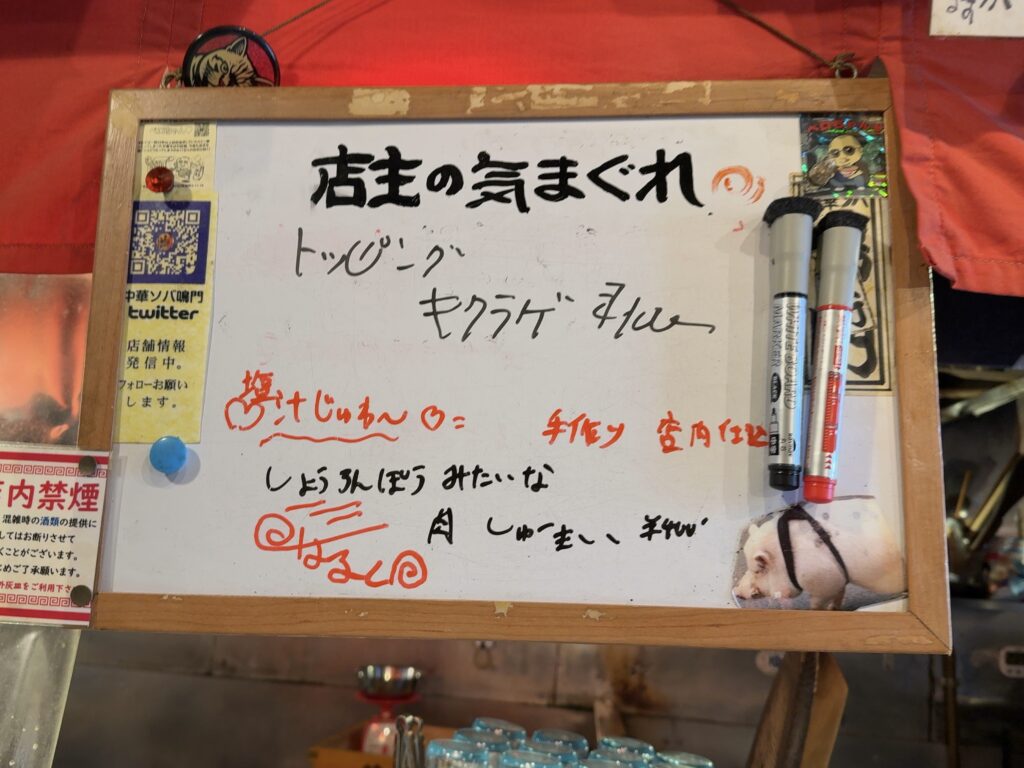 店主の気まぐれ
トッピング
キクラゲ ¥100
塩汁じゅわ〜
手作り 店内仕込
しょうろんぽう みたいな
肉 しゅーまい ¥400
はるく
中華ソバ鳴門
twitter
店舗情報
発信中。
フォローお願い
します。
WHITE BOARD
MARKER
内禁煙
混雑時の酒類の提供に
してはお断りさせて
くことがございます。
じめご了承願います。
外灰皿をご利用下さ